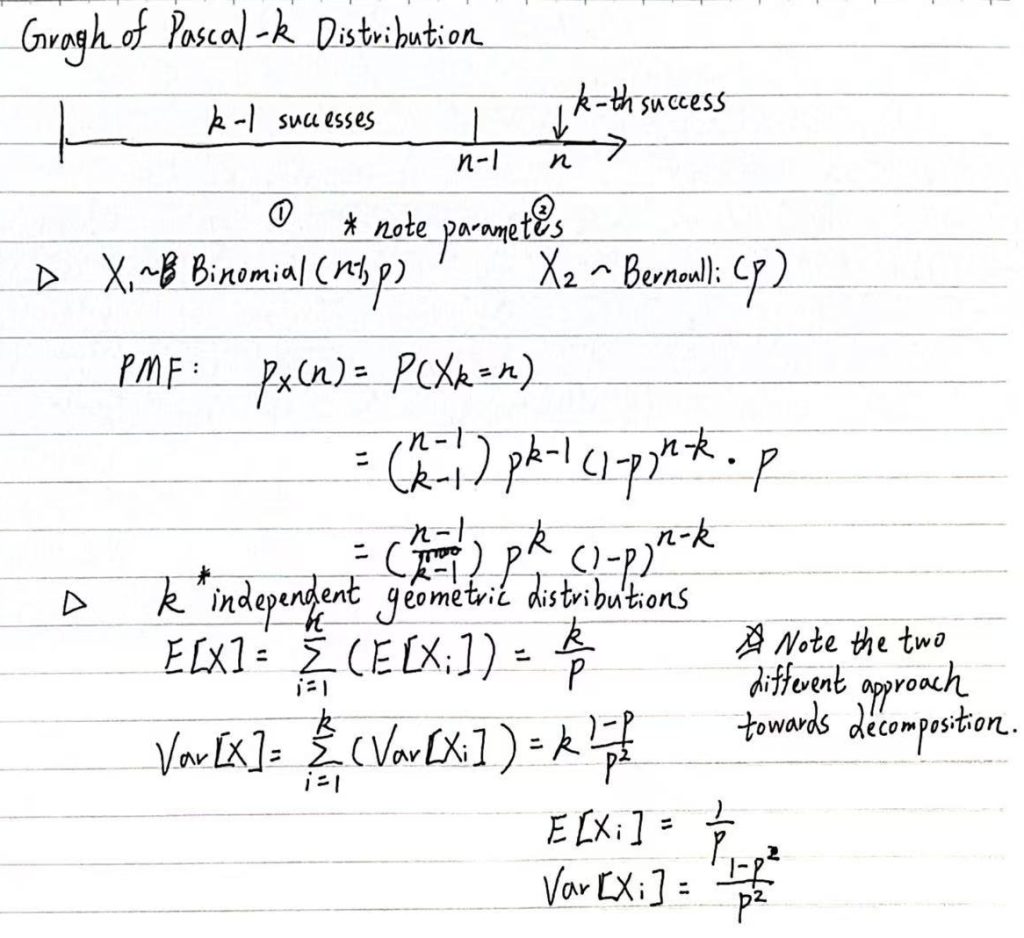 Gragh of Pascal-k Distribution
k-1 successes
k-th success
n-1 n
① * note parametes ②
▷ X₁ ~ Binomial (n-1, p) X₂ ~ Bernoulli (p)
PMF: pₓ(n) = P(Xk = n)
= (n-1 k-1) p^{k-1} (1-p)^{n-k} · p
= (n-1 k-1) p^k (1-p)^{n-k}
▷ k * independent geometric distributions
E[X] = Σ_{i=1}^{k} (E[Xi]) = k/p
Var[X] = Σ_{i=1}^{k} (Var[Xi]) = k (1-p)/p²
Note the two
different approach
towards decomposition.
E[Xi] = 1/p
Var[Xi] = (1-p²)/p²